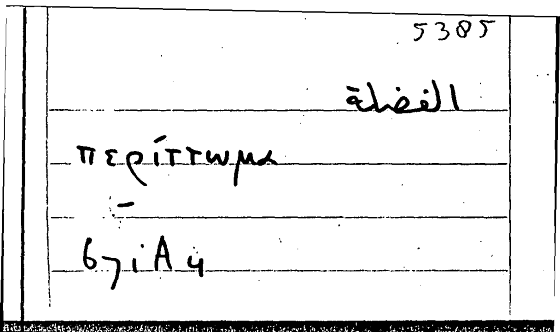 5385
الفضلة
περίττωμα
–
67iA4